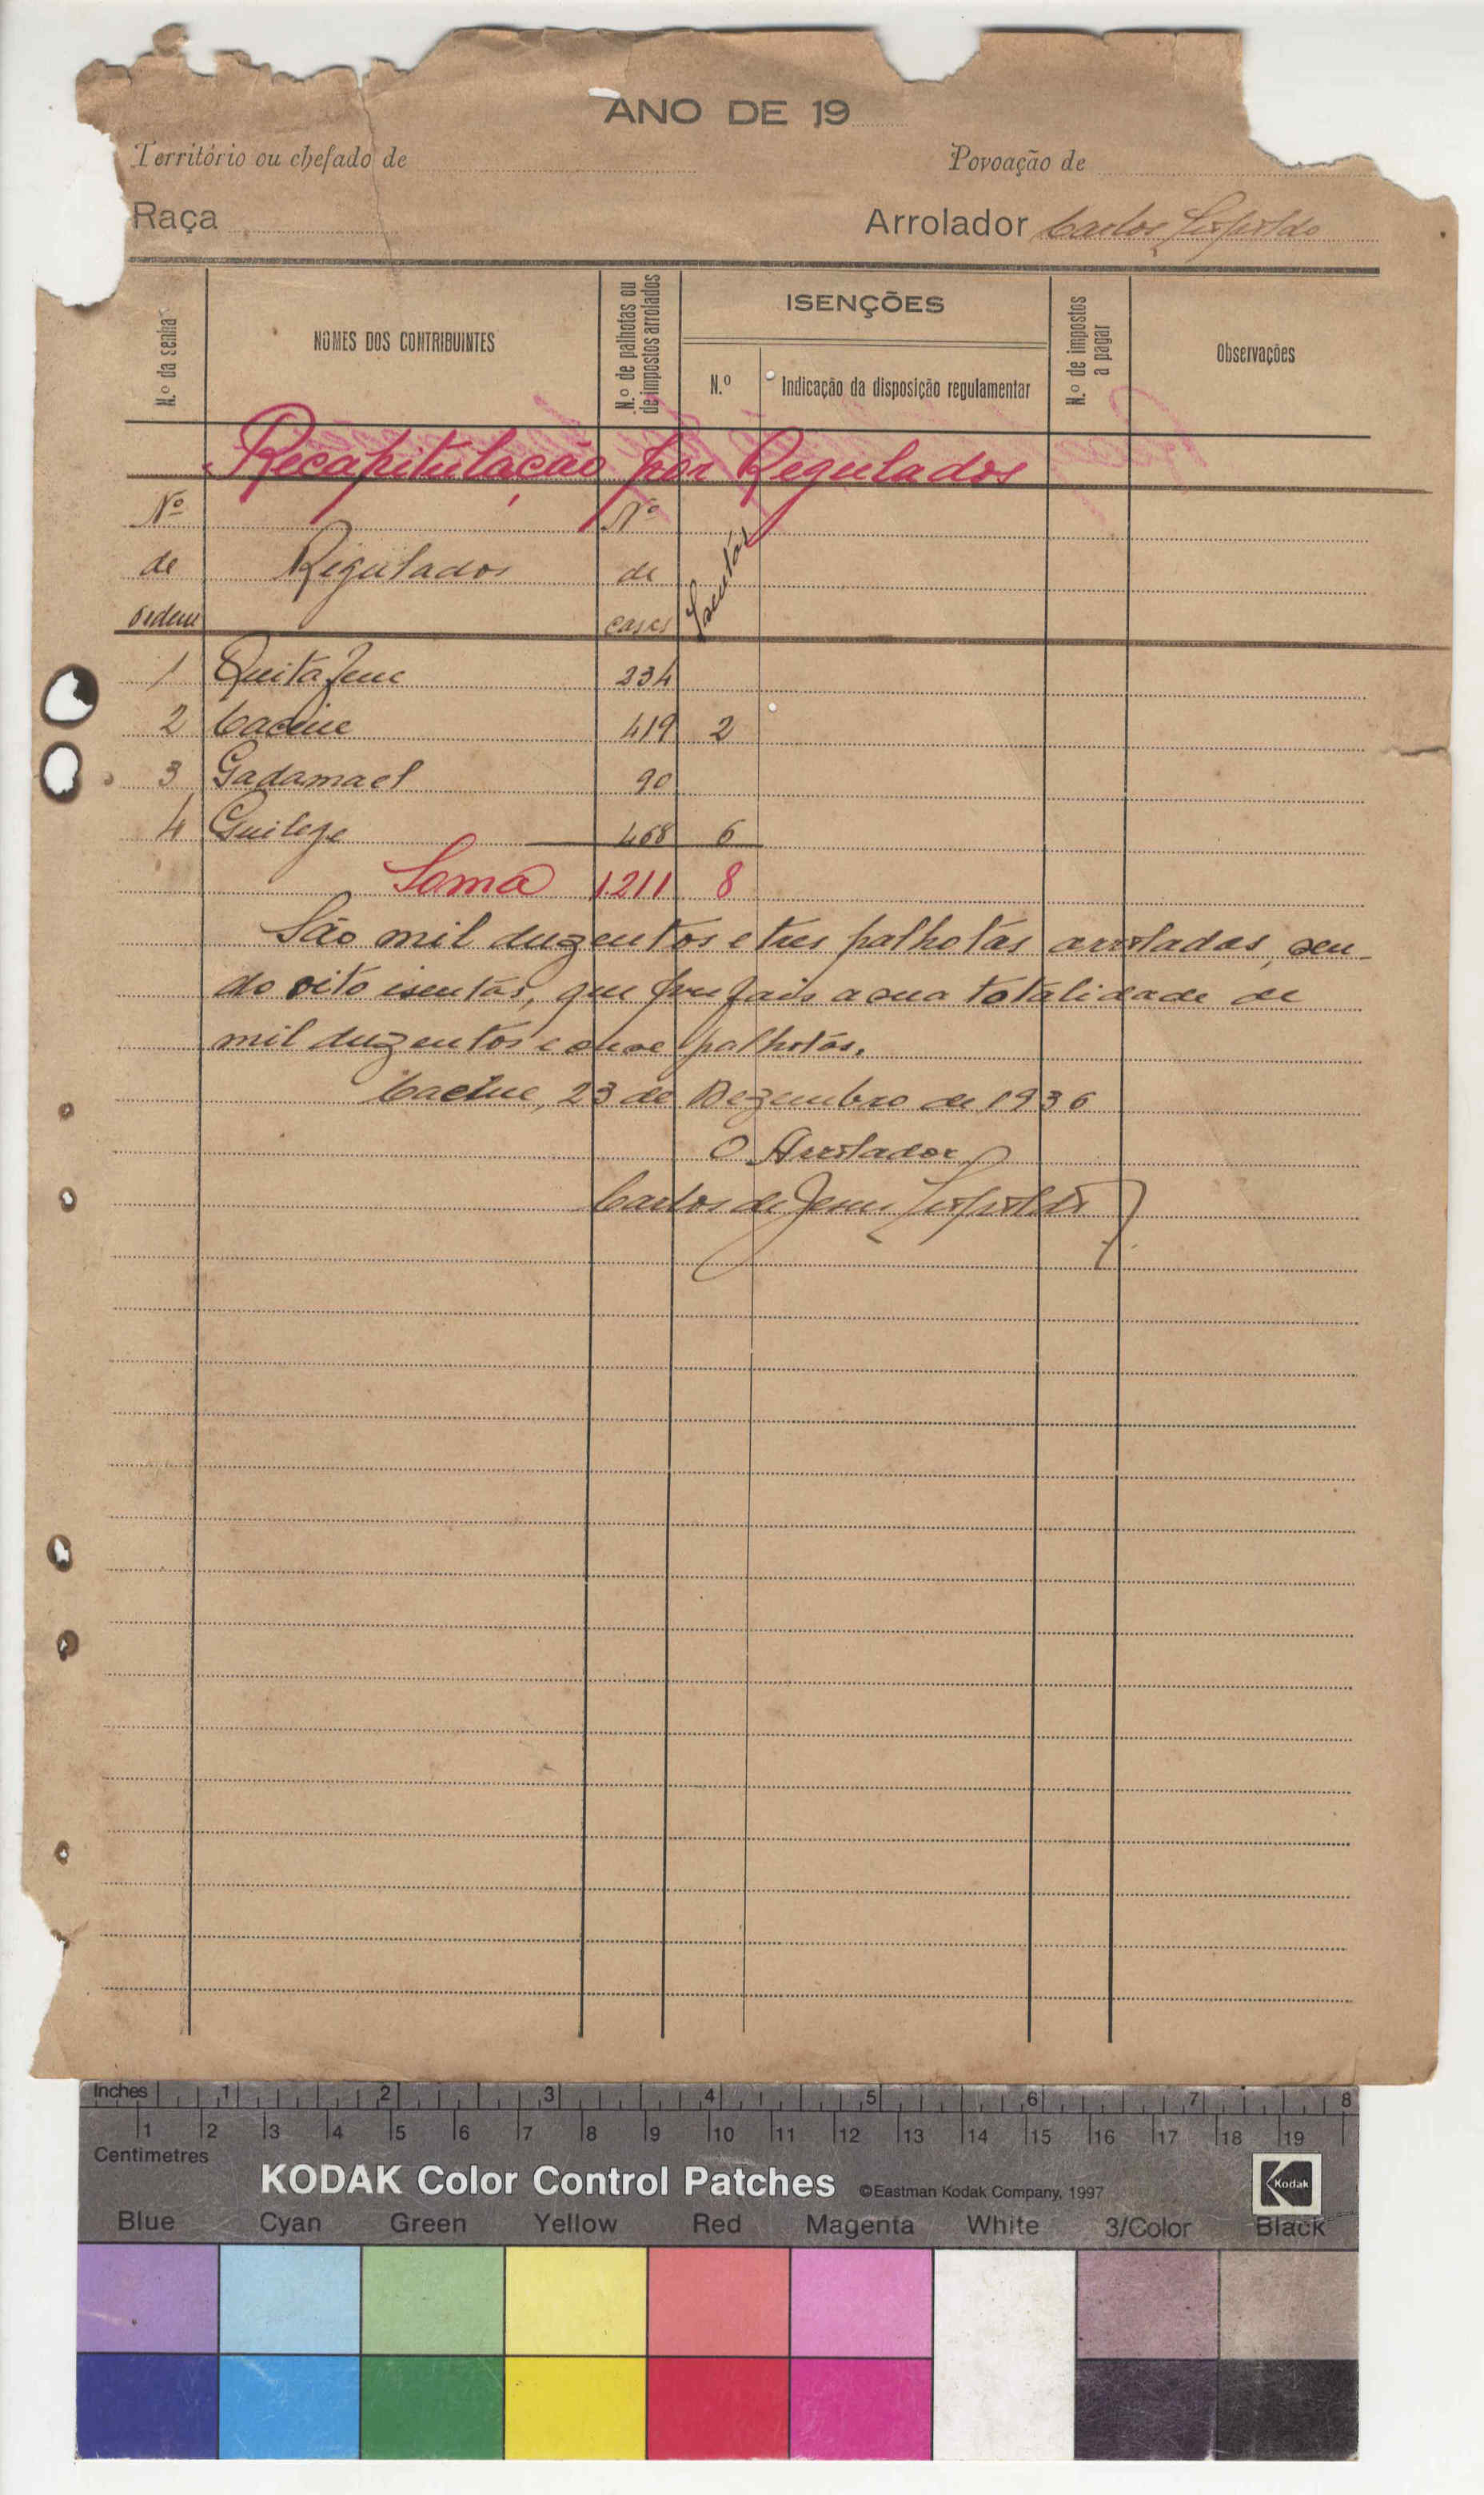 ANO DE 19
Território ou chefado de Povoação de
Raça Arrolador Carlos Leopoldo
N.º da senha
NOMES DOS CONTRIBUINTES
N.º de palhotas ou
de impostos arrolados
ISENÇÕES
N.º
Indicação da disposição regulamentar
N.º de impostos
a pagar
Observações
Recapitulação por Regulados
Nº Nº
de Regulados de Isentas
ordem casas
1 Quitafene 234
2 Cacine 419 2
3 Gadamael 90
4 Guilege 468 6
Soma 1211 8
São mil duzentos e tres palhotas arroladas, sen-
do oito isentas, que prefais a sua totalidade de
mil duzentos e onze palhotas.
Cacine, 23 de Dezembro de 1936
O Arrolador
Carlos de Jesus Leopoldo
Inches 1 2 3 4 5 6 7 8
1 2 3 4 5 6 7 8 9 10 11 12 13 14 15 16 17 18 19
Centimetres
KODAK Color Control Patches ©Eastman Kodak Company, 1997 Kodak
Blue Cyan Green Yellow Red Magenta White 3/Color Black